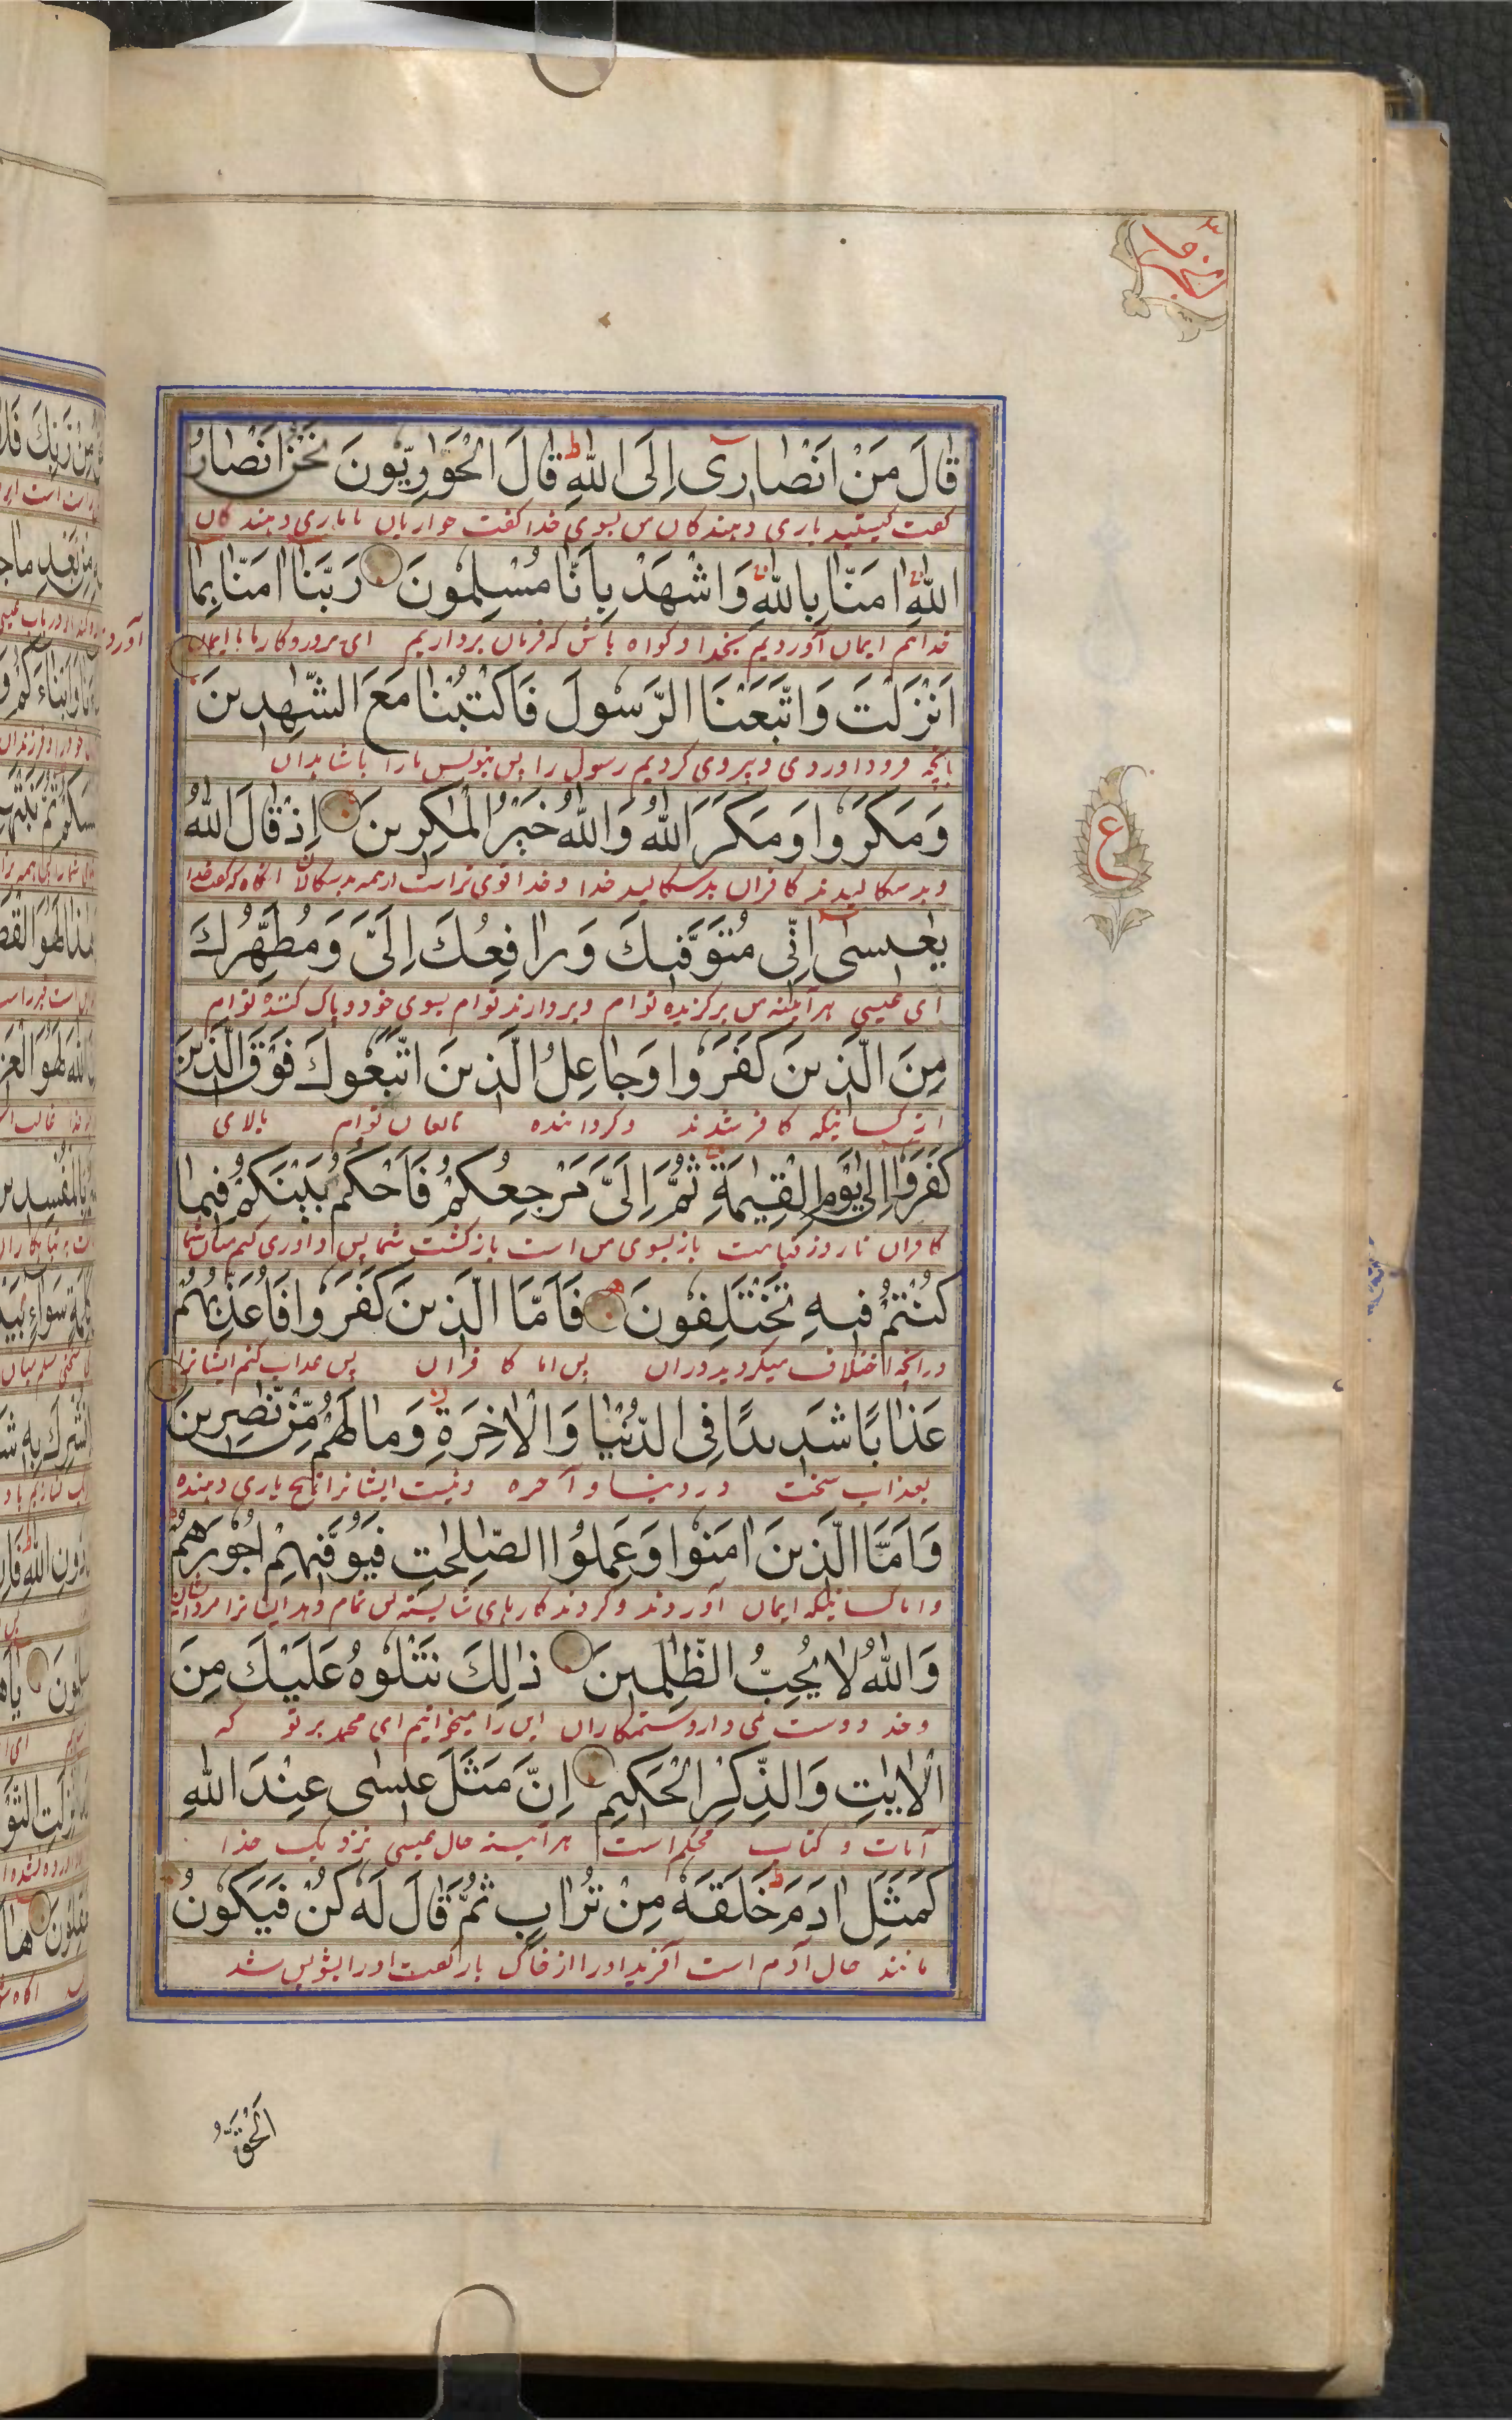 قَالَ مَنْ اَنْصَارِیٓ اِلَی اللّٰهِ ط قَالَ الْحَوَارِیُّونَ نَحْنُ اَنْصَارُ
گفت کیستید یاری دهندگان من بسوی خدا گفت حواریان ما یاری دهندگان
اللّٰهِ اٰمَنَّا بِاللّٰهِ وَاشْهَدْ بِاَنَّا مُسْلِمُونَ رَبَّنَا اٰمَنَّا بِمَا
خدائیم ایمان آوردیم بخدا و گواه باش که فرمان برداریم ای پروردگار ما ما ایمان آورد
اَنْزَلْتَ وَاتَّبَعْنَا الرَّسُولَ فَاكْتُبْنَا مَعَ الشّٰهِدِینَ
بآنچه فرود اوردی و پیروی کردیم رسول را پس بنویس مارا با شاهدان
وَمَكَرُوا وَمَكَرَ اللّٰهُ وَاللّٰهُ خَیْرُ الْمٰكِرِینَ اِذْ قَالَ اللّٰهُ
و بد سکالیدند کافران بد سکالید خدا و خدا قوی تر است از همه بد سکالان انگاه که گفت خدا
یٰعِیسٰی اِنِّی مُتَوَفِّیكَ وَرَافِعُكَ اِلَیَّ وَمُطَهِّرُكَ
ای عیسی هرآینه من برگزیده توام و بردارنده توام بسوی خود و پاک کننده توام
مِنَ الَّذِینَ كَفَرُوا وَجَاعِلُ الَّذِینَ اتَّبَعُوكَ فَوْقَ الَّذِینَ
از کسانیکه کافر شدند و گرداننده تابعان توام بالای
كَفَرُوا اِلٰی یَوْمِ الْقِیٰمَةِ ثُمَّ اِلَیَّ مَرْجِعُكُمْ فَاَحْكُمُ بَیْنَكُمْ فِیمَا
کافران تا روز قیامت باز بسوی من است بازگشت شما پس داوری کنم میان شما
كُنْتُمْ فِیهِ تَخْتَلِفُونَ فَاَمَّا الَّذِینَ كَفَرُوا فَاُعَذِّبُهُمْ
درآنچه اختلاف میکردید دران پس اما کافران پس عذاب کنم ایشانرا
عَذَابًا شَدِیدًا فِی الدُّنْیَا وَالْاٰخِرَةِ وَمَا لَهُمْ مِّنْ نّٰصِرِینَ
بعذاب سخت در دنیا و آخره و نیست ایشانرا هیچ یاری دهنده
وَاَمَّا الَّذِینَ اٰمَنُوا وَعَمِلُوا الصّٰلِحٰتِ فَیُوَفِّیهِمْ اُجُورَهُمْ
و اما کسانیکه ایمان آوردند و کردند کارهای شایسته پس تمام دهد ایشانرا مزد ایشان
وَاللّٰهُ لَا یُحِبُّ الظّٰلِمِینَ ذٰلِكَ نَتْلُوهُ عَلَیْكَ مِنَ
و خدا دوست نمی دارد ستمکاران این را میخوانیم ای محمد بر تو که
الْاٰیٰتِ وَالذِّكْرِ الْحَكِیمِ اِنَّ مَثَلَ عِیسٰی عِنْدَ اللّٰهِ
آیات و کتاب محکم است هرآینه حال عیسی نزدیک خدا
كَمَثَلِ اٰدَمَ ط خَلَقَهٗ مِنْ تُرَابٍ ثُمَّ قَالَ لَهٗ كُنْ فَیَكُونُ
مانند حال آدم است آفرید اورا از خاک باز گفت اورا بشو پس شد
ع
اَلْحَقُّ